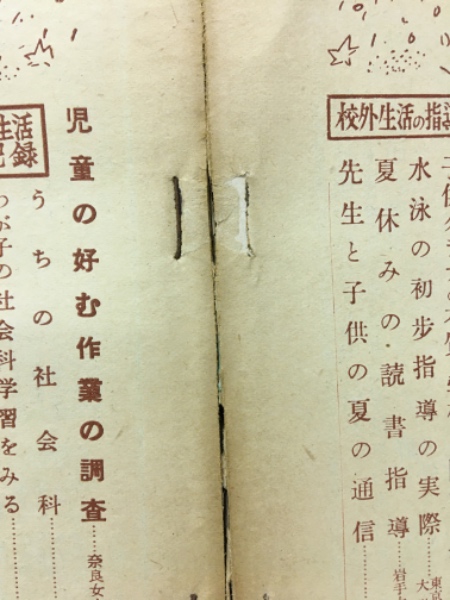 校外生活の指導
水泳の初歩指導の実際……東京
夏休みの読書指導……岩手
先生と子供の夏の通信……
児童の好む作業の調査……奈良女
うちの社会科……
の社会科学習をみる……
生活
記録